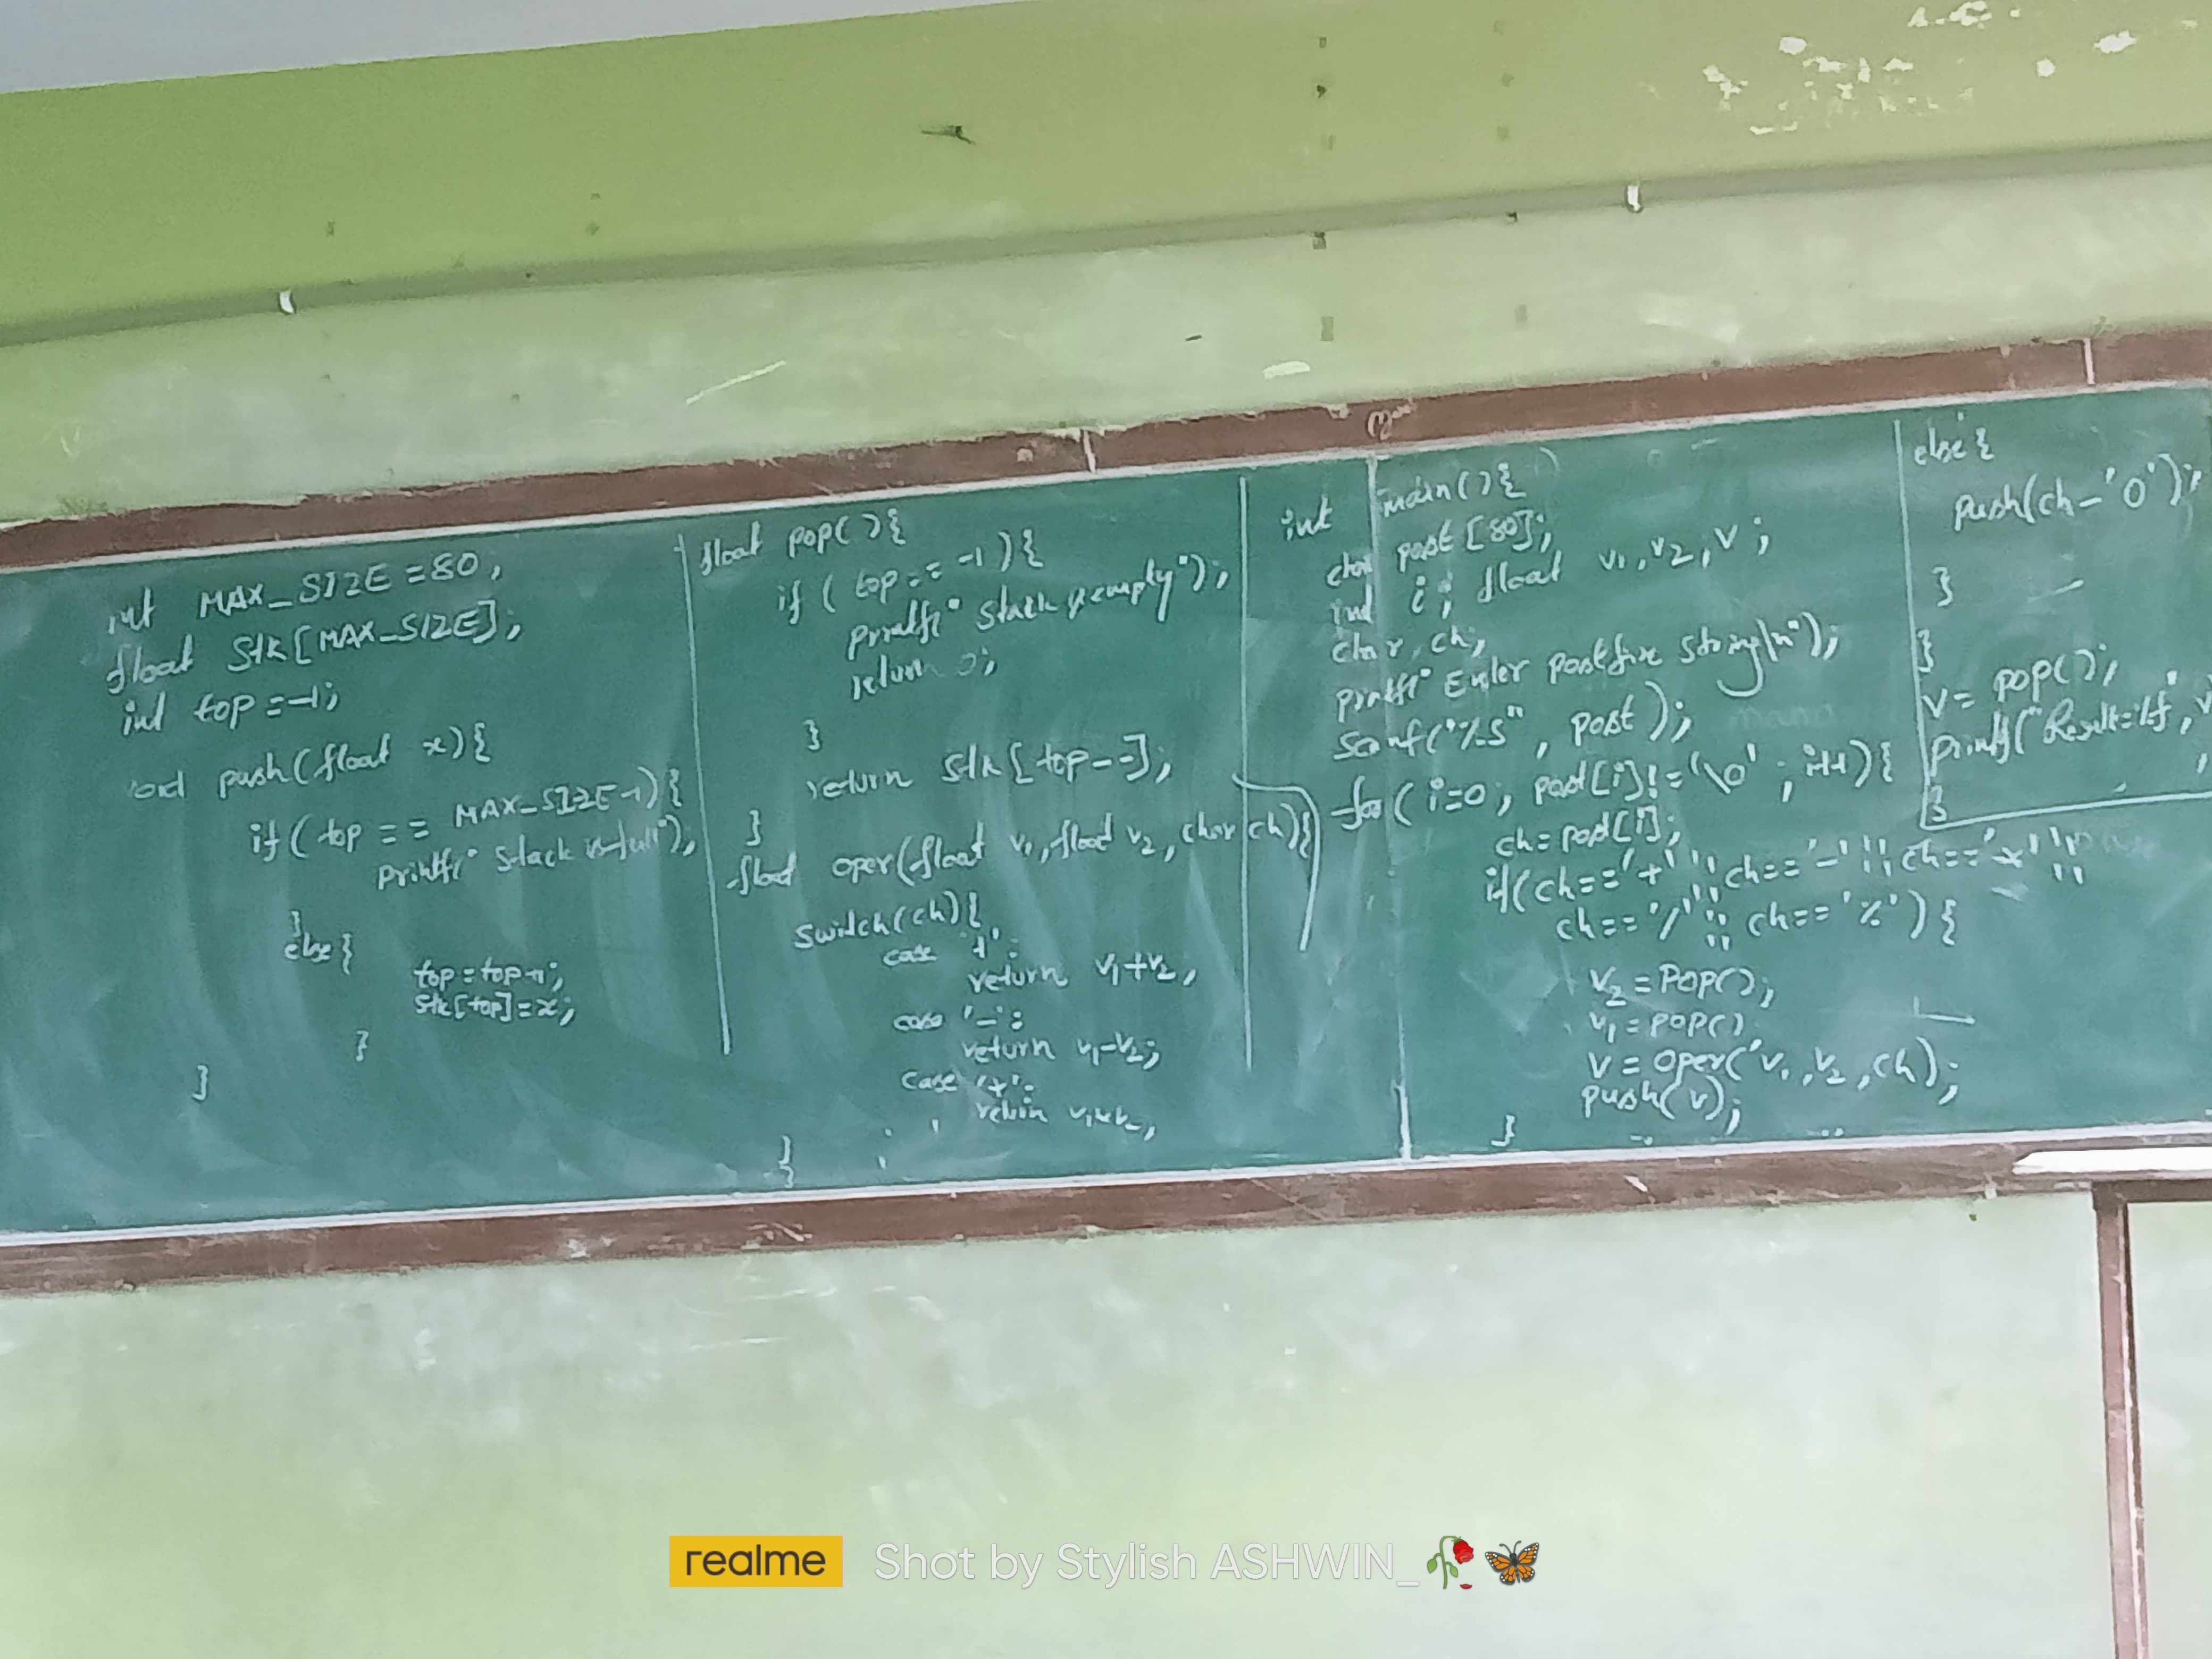 int MAX_SIZE = 80,
float Stk[MAX_SIZE];
int top = -1;
void push(float x){
if( top == MAX_SIZE-1){
printf(" Stack is full"),
}
else{
top = top+1;
Stk[top] = x;
}
}
float pop(){
if ( top == -1 ){
printf(" Stack is empty");
return 0;
}
return Stk[top--];
}
float oper(float v1, float v2, char ch){
switch(ch){
case '+':
return v1+v2,
case '-':
return v1-v2;
case '*':
return v1*v2,
}
}
int main(){
char post [80];
int i; float v1, v2, v;
char, ch;
printf(" Enter postfix string\n");
scanf("%s", post);
for( i=0; post[i]!='\0'; i++){
ch = post[i];
if(ch=='+' || ch=='-' || ch=='*' ||
ch=='/' || ch=='%'){
v2 = POP();
v1 = POP()
v = oper('v1, v2, ch);
push(v);
}
else{
push(ch-'0');
}
}
v = pop();
printf("Result=%f", v
}
realme Shot by Stylish ASHWIN_🥀🦋